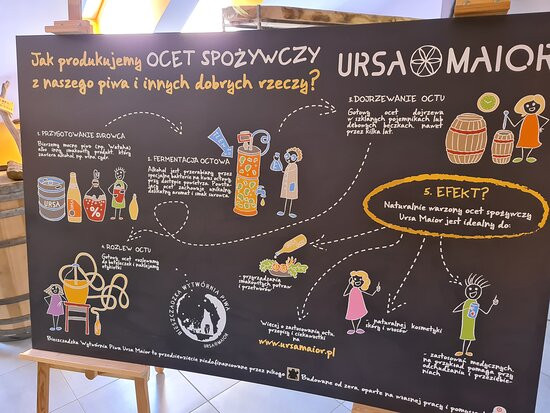 Jak produkujemy OCET SPOŻYWCZY
z naszego piwa i innych dobrych rzeczy?
URSA MAIOR
1. PRZYGOTOWANIE SUROWCA
Bierzemy mocne piwo (np. Watahę)
albo inny smakowity produkt, który
zawiera alkohol np. wino, cydr.
URSA
%
2. FERMENTACJA OCTOWA
Alkohol jest przerabiany przez
specjalne bakterie na kwas octowy
przy dostępie powietrza. Powstaje
ocet zachowuje
delikatny aromat i smak surowca.
3. DOJRZEWANIE OCTU
Gotowy ocet dojrzewa
w szklanych pojemnikach lub
dębowych beczkach, nawet
przez kilka lat.
4. ROZLEW OCTU
Gotowy ocet rozlewamy
do buteleczek i naklejamy
etykietki
BIESZCZADZKA WYTWÓRNIA PIWA
URSA MAIOR
5. EFEKT?
Naturalnie warzony ocet spożywczy
Ursa Maior jest idealny do:
- przyrządzania
smakowitych potraw
i przetworów
- naturalnej kosmetyki
skóry i włosów
- zastosowań medycznych,
na przykład pomaga przy
odchudzaniu i przeziębie-
niach
Więcej o zastosowaniu octu,
przepisy i ciekawostki
na
www.ursamaior.pl
Bieszczadzka Wytwórnia Piwa Ursa Maior to przedsięwzięcie niedofinansowane przez nikogo
Budowane od zera, oparte na własnej pracy i pomocy